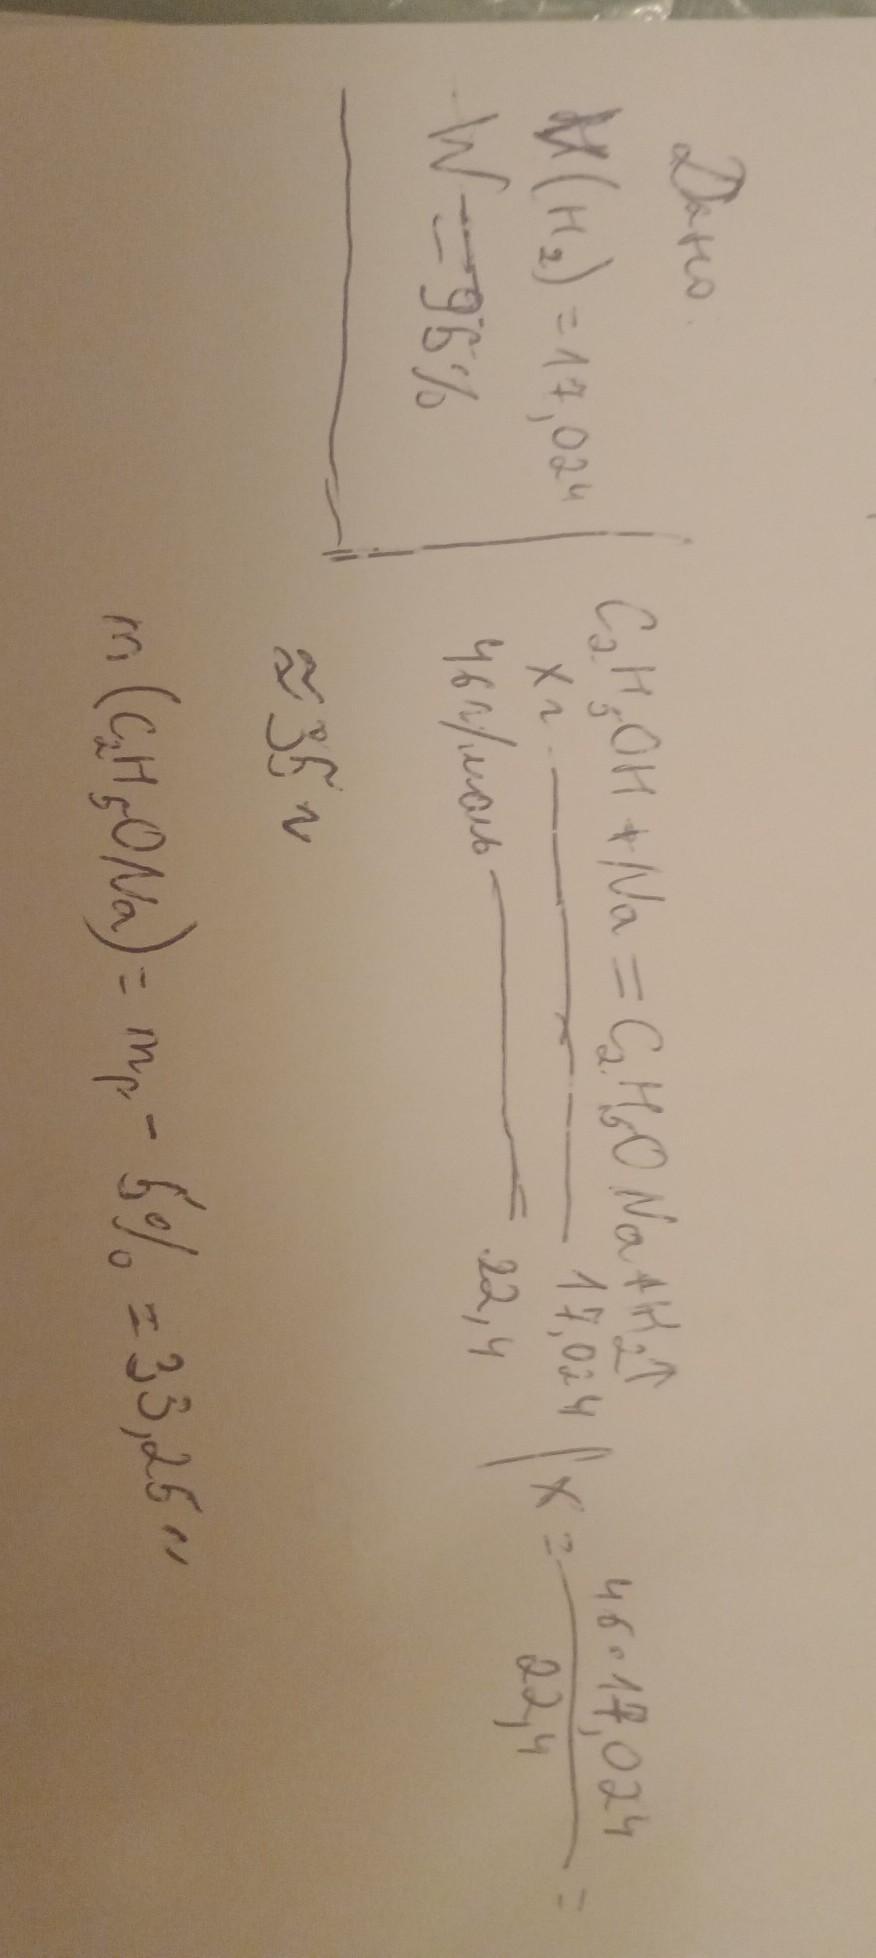 Дано.
V(H2) = 17,024
W = 95%
C2H5OH + Na = C2H5ONa + H2↑
xг. — 17,024 | x = 46·17,024 / 22,4 =
46г/моль — 22,4
≈ 35 г
m(C2H5ONa) = mр - 5% = 33,25 г